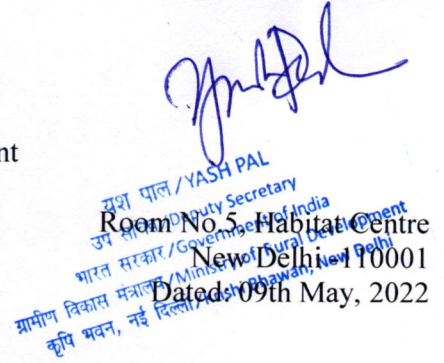 nt
यश पाल / YASH PAL
उप सचिव/Deputy Secretary
भारत सरकार/Government of India
ग्रामीण विकास मंत्रालय/Ministry of Rural Development
कृषि भवन, नई दिल्ली/Krishi Bhawan, New Delhi
Room No.5, Habitat Centre
New Delhi -110001
Dated: 09th May, 2022